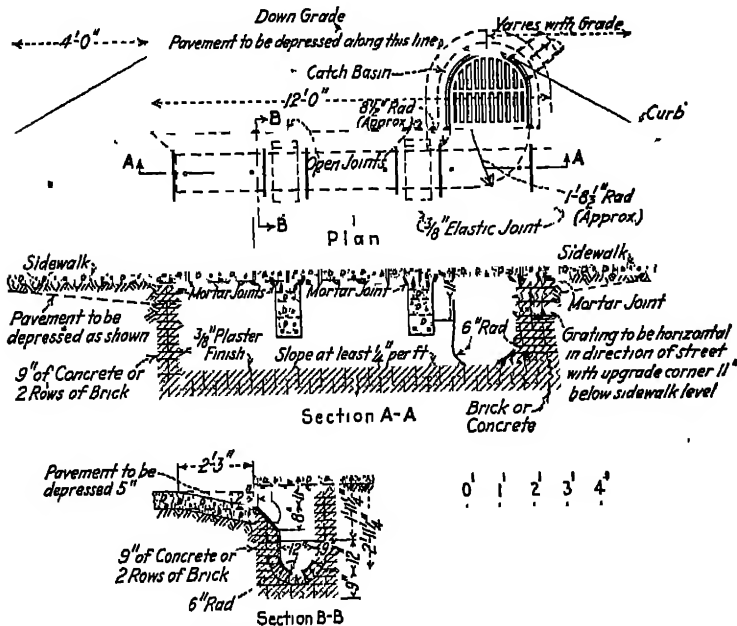 Down Grade
Varies with Grade
4'0"
Pavement to be depressed along this line
Catch Basin
12'0"
8½" Rad
(Approx.)
Curb
B
A
A
Open Joints
B
1'-8½" Rad
(Approx.)
3/8" Elastic Joint
Plan
Sidewalk
Sidewalk
Mortar Joints
Mortar Joint
Mortar Joint
Pavement to be
depressed as shown
3/8" Plaster
Finish
Slope at least ¼" per ft
6" Rad
Grating to be horizontal
in direction of street
with upgrade corner 11"
below sidewalk level
9" of Concrete or
2 Rows of Brick
Section A-A
Brick or
Concrete
Pavement to be
depressed 5"
2'-3"
8"
12"
9"
1'-11¼"
2'-11¼"
9"
12"
0' 1' 2' 3' 4'
9" of Concrete or
2 Rows of Brick
6" Rad
Section B-B